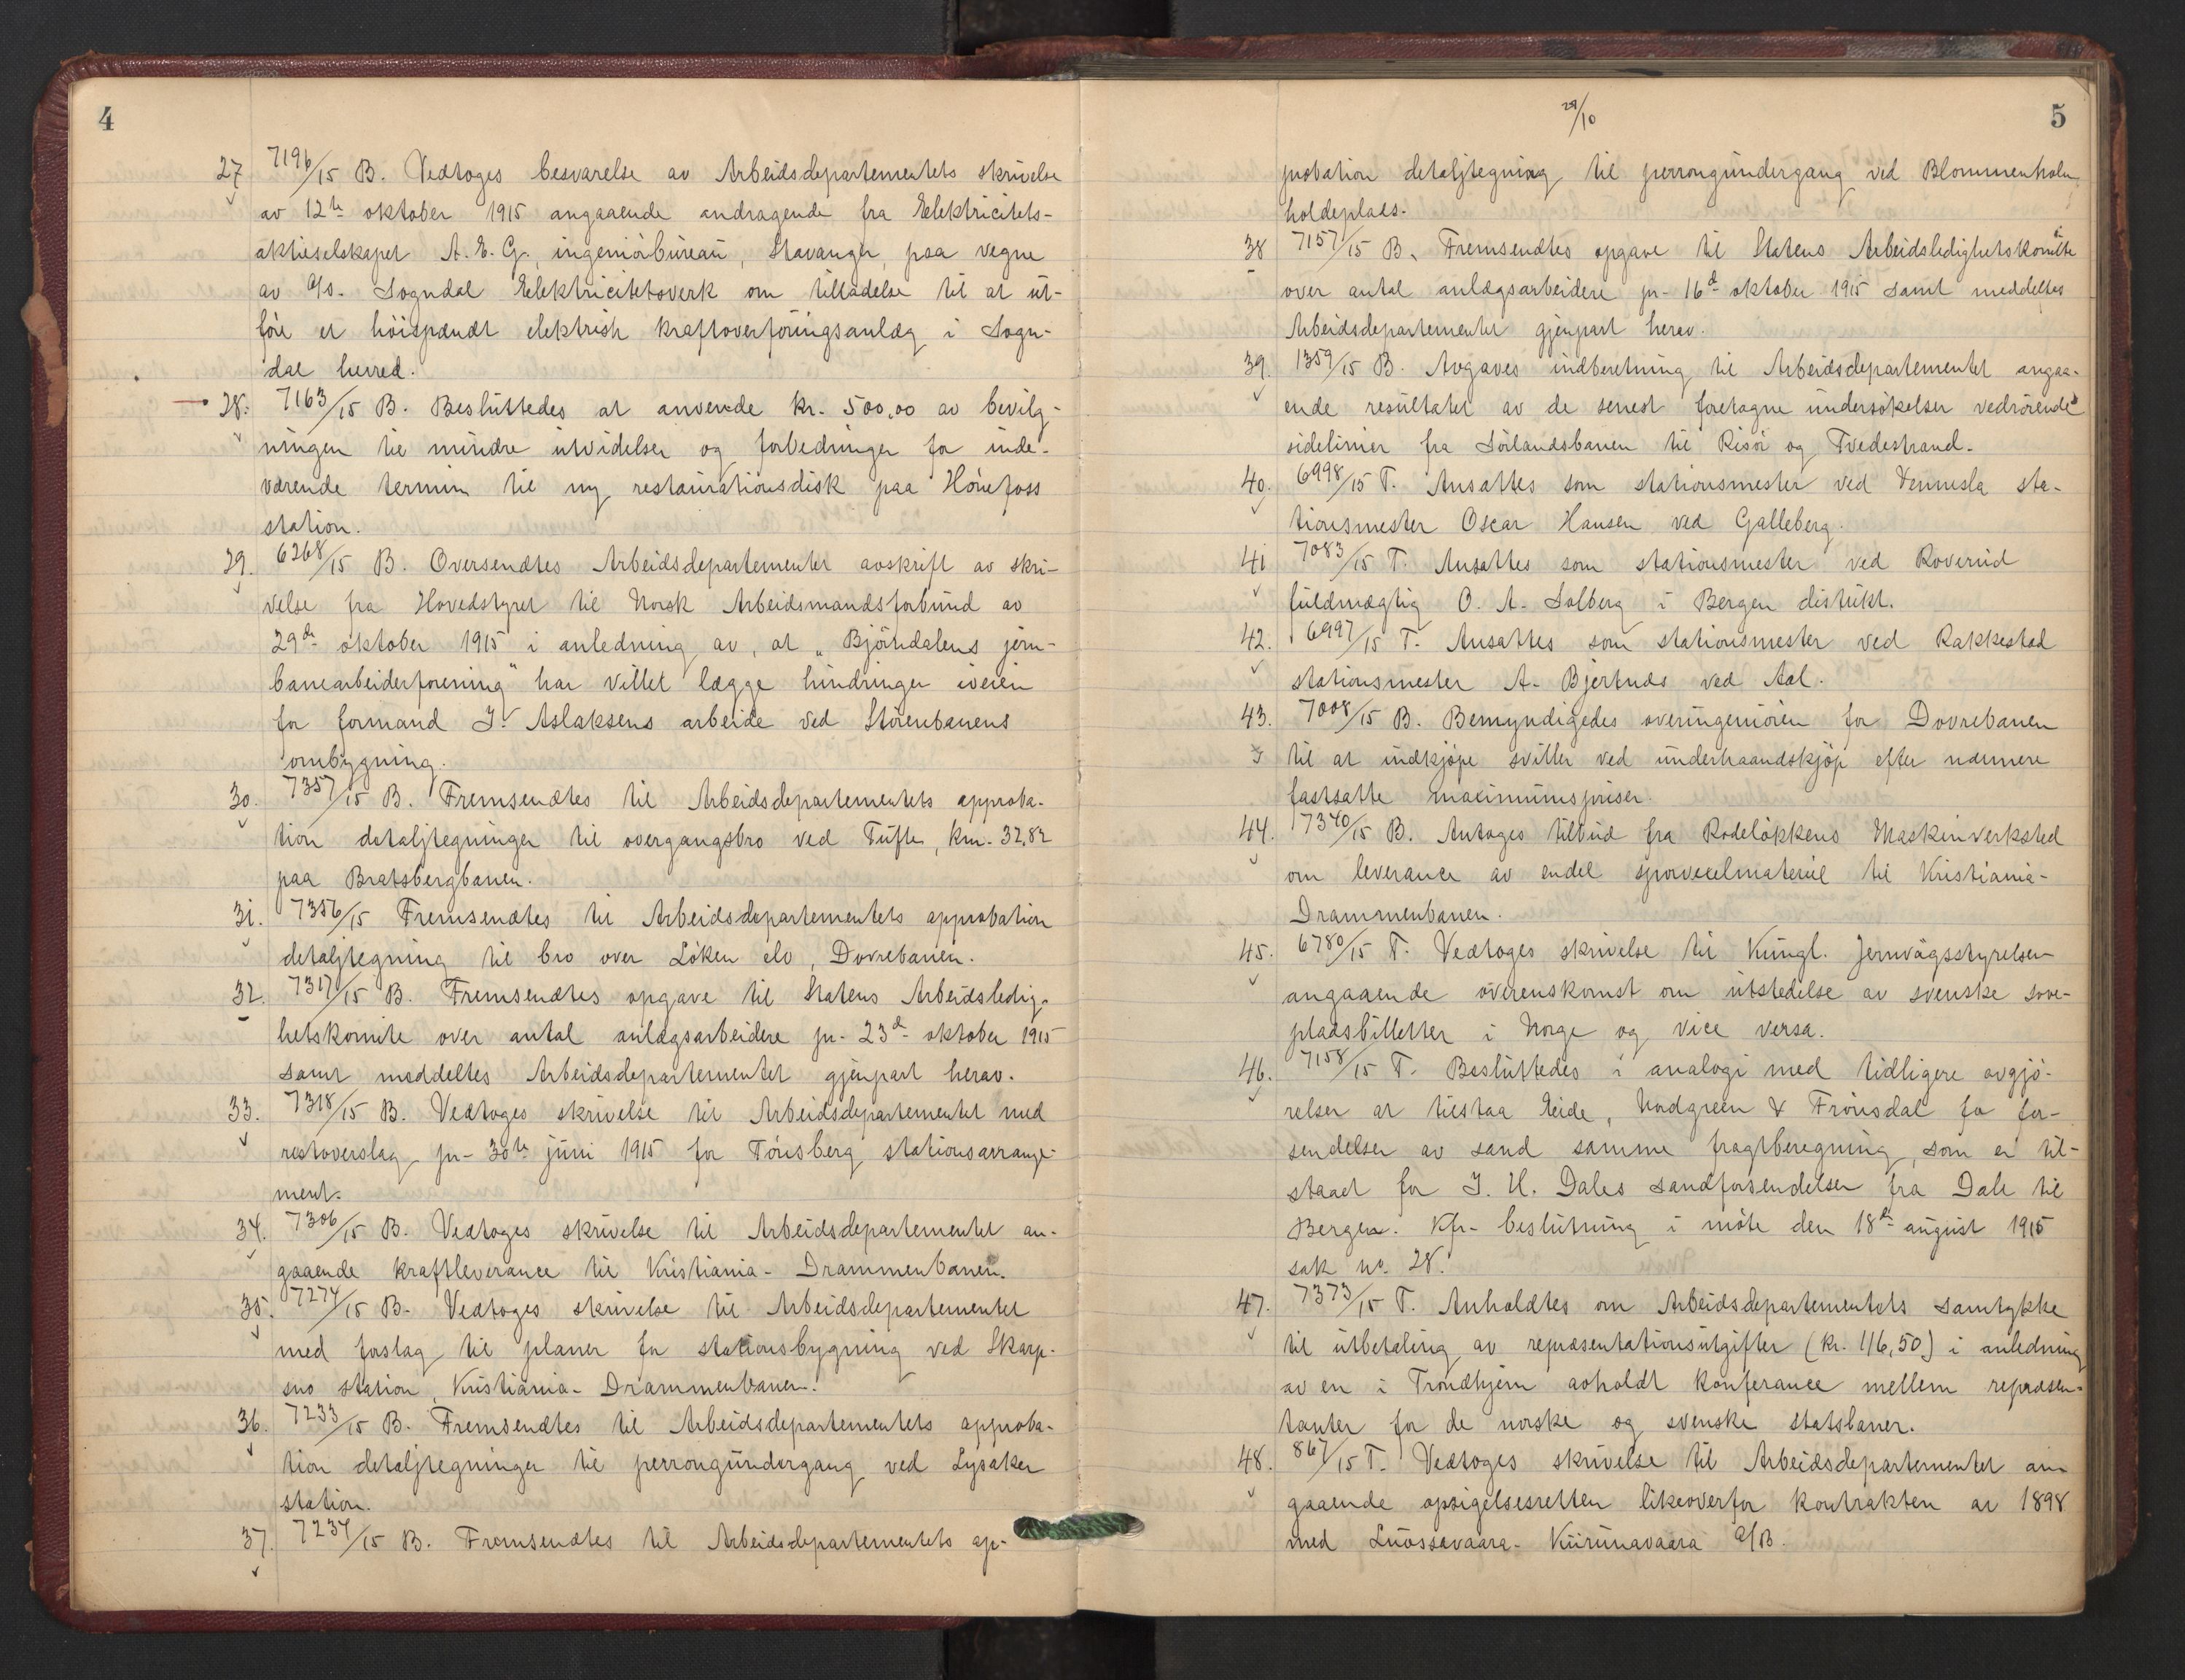 4
27 7196/15 B. Vedtoges besvarelse av Arbeidsdepartementets skrivelse
av 12te oktober 1915 angaaende andragende fra Elektricitets-
aktieselskapet A. E. G., ingeniörbureau, Stavanger, paa vegne
av A/S. Sogndal Elektricitetsverk om tilladelse til at ut-
føre et höispændt elektrisk kraftoverföringsanlæg i Sogn-
dal herred.
28. 7163/15 B. Besluttedes at anvende kr. 500,00 av bevilg-
ningen til mindre utvidelser og forbedringer for inde-
værende termin til ny restaurationsdisk paa Hönefoss
station.
29. 6268/15 B. Oversendtes Arbeidsdepartementet avskrift av skri-
velse fra Hovedstyret til Norsk Arbeidsmandsforbund av
29de oktober 1915 i anledning av, at „Bjørndalens jern-
banearbeiderforening" har villet lægge hindringer iveien
for formand J. Aslaksens arbeide ved Störenbanens
ombygning.
30. 7357/15 B. Fremsendtes til Arbeidsdepartementets approba-
tion detaljtegninger til overgangsbro ved Tufte, km. 32,82
paa Bratsbergbanen.
31. 7356/15 Fremsendtes til Arbeidsdepartementets approbation
detaljtegning til bro over Löken elv, Dovrebanen.
32. 7317/15 B. Fremsendtes opgave til Statens Arbeidsledig-
hetskomite over antal anlægsarbeidere pr. 23d oktober 1915
samt meddeltes Arbeidsdepartementet gjenpart herav.
33. 7318/15 B. Vedtoges skrivelse til Arbeidsdepartementet med
restoverslag pr. 30te juni 1915 for Tönsberg stationsarrange-
ment.
34. 7306/15 B. Vedtoges skrivelse til Arbeidsdepartementet an-
gaaende kraftleverance til Kristiania-Drammenbanen.
35. 7274/15 B. Vedtoges skrivelse til Arbeidsdepartementet
med forslag til planer for stationsbygning ved Skarp-
sno station, Kristiania-Drammenbanen.
36. 7233/15 B. Fremsendtes til Arbeidsdepartementets approba-
tion detaljtegninger til perrongundergang ved Lysaker
station.
37. 7234/15 B. Fremsendtes til Arbeidsdepartementets ap-
29/10
5
probation detaljtegning til perrongundergang ved Blommenholm
holdeplass.
38 7157/15 B. Fremsendtes opgave til Statens Arbeidsledighetskomite
over antal anlægsarbeidere pr. 16d oktober 1915 samt meddeltes
Arbeidsdepartementet gjenpart herav.
39. 1359/15 B. Avgaves indberetning til Arbeidsdepartementet angaa-
ende resultatet av de senest foretagne undersökelser vedrörende
sidelinier fra Sörlandsbanen til Risör og Tvedestrand.
40. 6998/15 T. Ansattes som stationsmester ved Vennesla sta-
tionsmester Oscar Hansen ved Galleberg.
41 7083/15 T. Ansattes som stationsmester ved Roverud
fuldmægtig O. A. Solberg i Bergen distrikt.
42. 6997/15 T. Ansattes som stationsmester ved Rakkestad
stationsmester A. Bjertnæs ved Aal.
43. 7008/15 B. Bemyndigedes overingeniören for Dovrebanen
til at indkjöpe sviller ved underhaandskjöp efter nærmere
fastsatte maximumspriser.
44. 7340/15 B. Antoges tilbud fra Rodelökkens Maskinverksted
om leverance av endel sporvexelmateriel til Kristiania-
Drammenbanen.
45. 6780/15 T. Vedtoges skrivelse til Kungl. Jernvägsstyrelsen
angaaende overenskomst om utstedelse av svenske sove-
pladsbilletter i Norge og vice versa.
46. 7158/15 T. Besluttedes i analogi med tidligere avgjö-
relser at tilstaa Eide, Nordgreen & Frönsdal for for-
sendelser av sand samme fragtberegning, som er til-
staaet for J. U. Dales sandforsendelser fra Dale til
Bergen. Kfr. beslutning i möte den 18d august 1915
sak no. 28.
47. 7373/15 T. Anholdtes om Arbeidsdepartementets samtykke
til utbetaling av repræsentationsutgifter (kr. 116,50) i anledning
av en i Trondhjem avholdt konferance mellem repræsen-
tanter for de norske og svenske statsbaner.
48. 867/15 T. Vedtoges skrivelse til Arbeidsdepartementet an-
gaaende opsigelsesretten likeoverfor kontrakten av 1898
med Luossavaara-Kiirunavaara A/B.